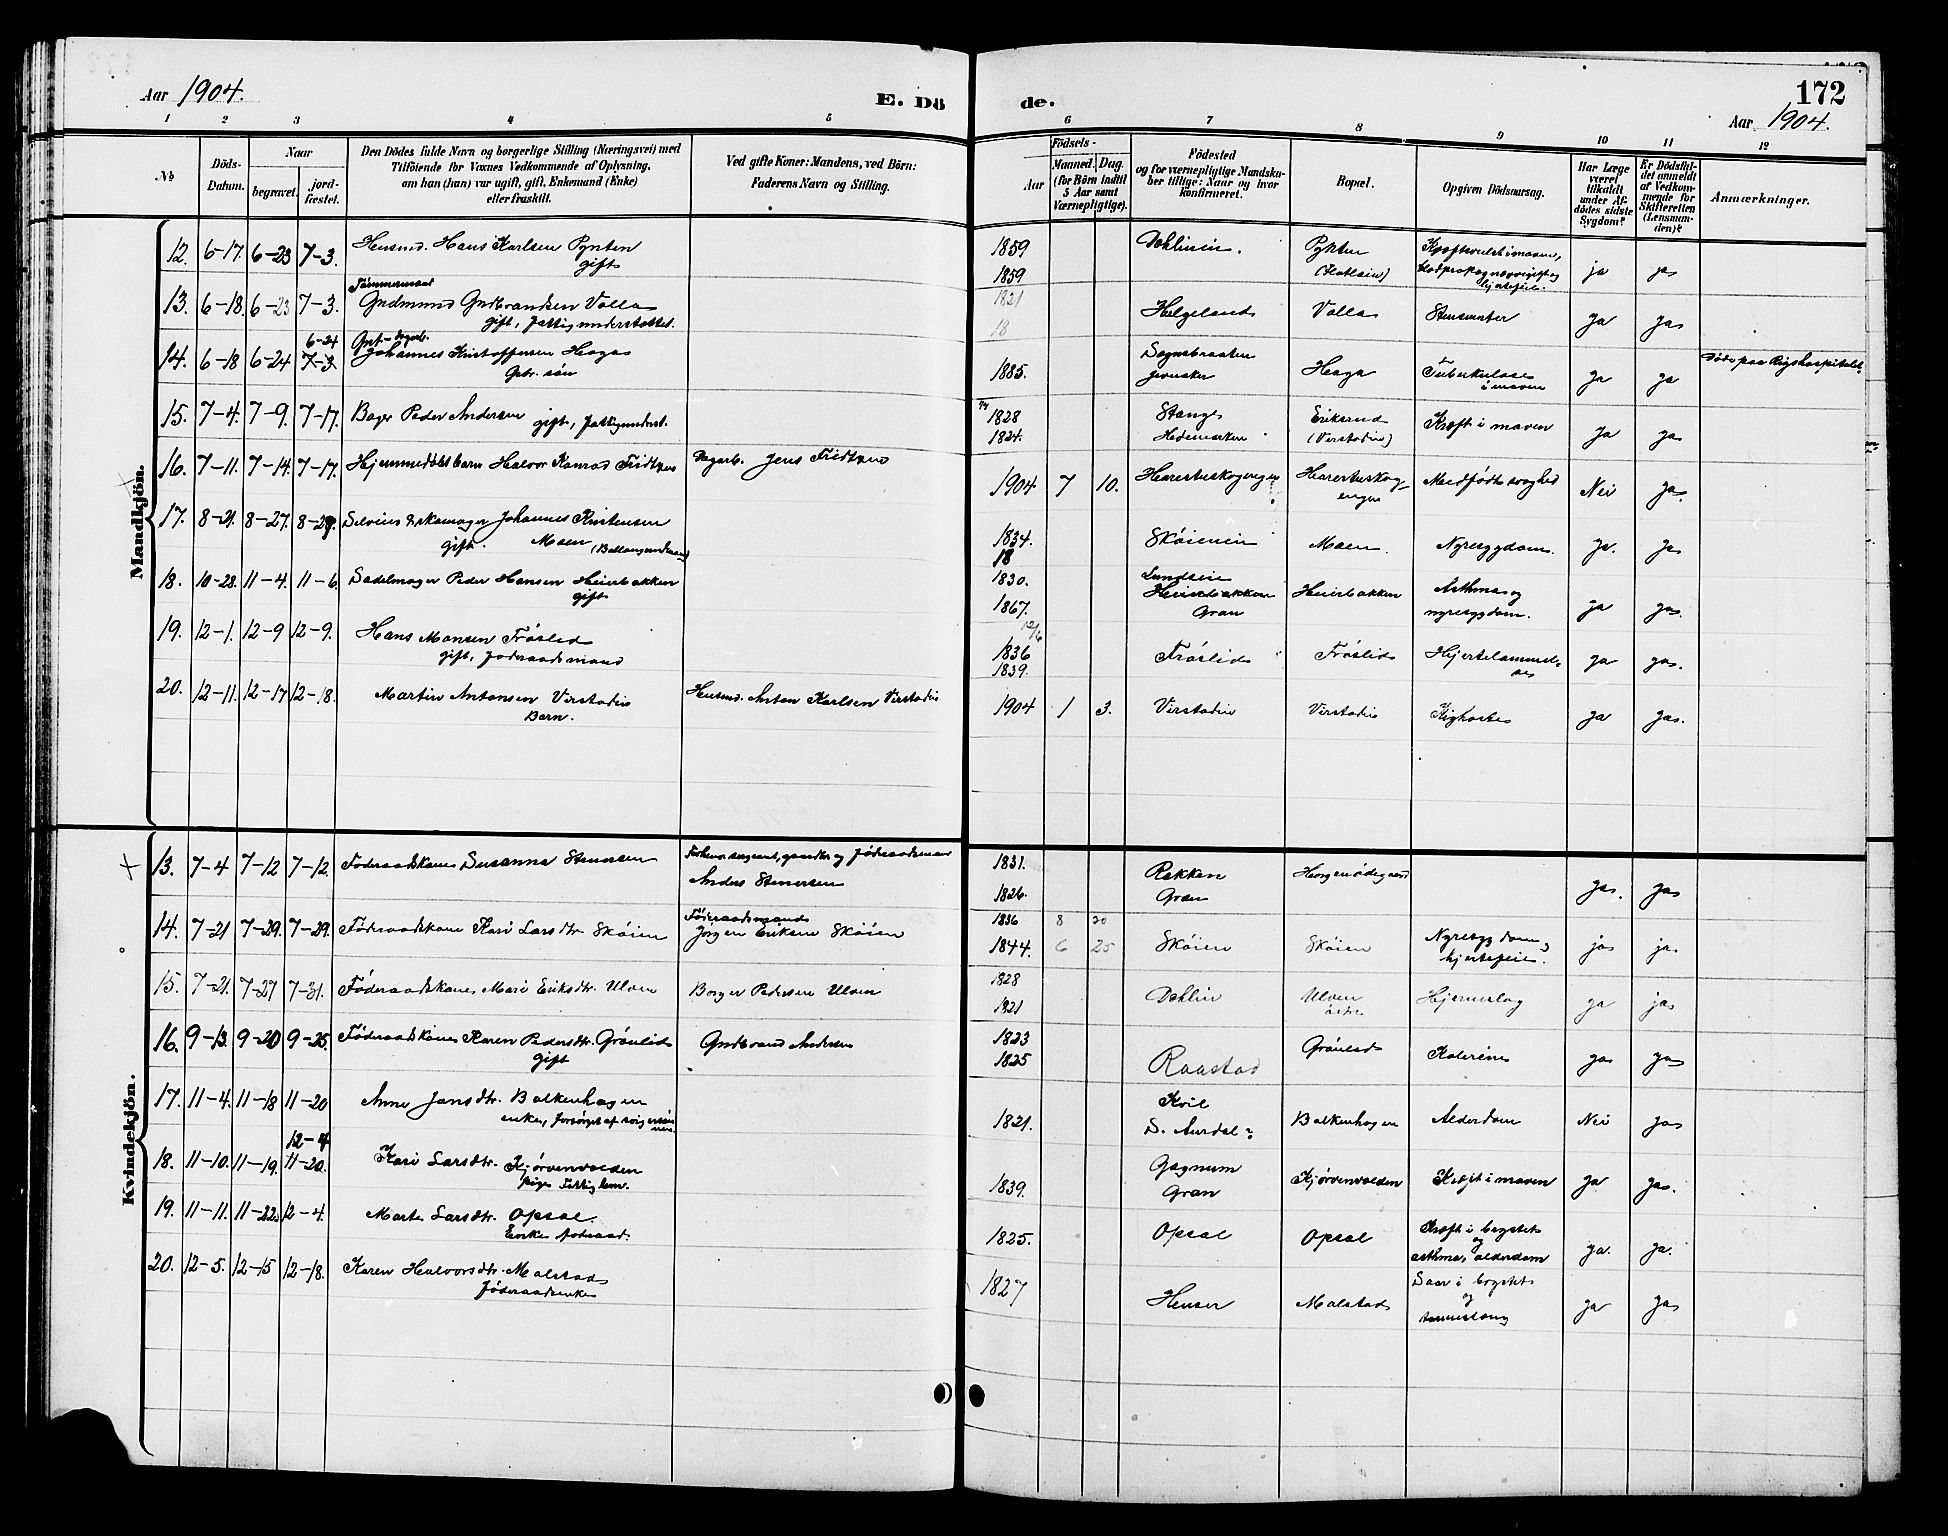 Aar 1904.
E. Dö
de.
172
Aar 1904.
1 2 3 4 5 6 7 8 9 10 11 12
No
Döds-Datum.
Naar
begravet.
jord-fæstet.
Den Dödes fulde Navn og borgerlige Stilling (Næringsvei) med
Tilföiende for Voxnes Vedkommende af Oplysning,
om han (hun) var ugift, gift, Enkemand (Enke)
eller fraskilt.
Ved gifte Koner: Mandens, ved Börn:
Faderens Navn og Stilling.
Födsels-
Aar
Maaned. Dag.
(for Börn indtil
5 Aar samt
Værnepligtige).
Födested
og for værnepligtige Mandska-
ber tillige: Naar og hvor
konfirmeret.
Bopæl.
Opgiven Dödsaarsag.
Har Læge
været
tilkaldt
under Af-
dödes sidste
Sygdom?
Er Dödsfal-
det anmeldt
af Vedkom-
mende for
Skifteretten
(Lensman-
den)?
Anmærkninger.
Mandkjön.
12. 6-17. 6-23 7-3. Husmd. Hans Karlsen Pynten gift 1859 1859 Dehlinein. Pynten ja ja
13. 6-18. 6-23 7-3. Tømmermand Gudmund Gudbrandsen Volla gift, Fattigunderstøttet. 1821 18 Helgeland Volla ja ja
14. 6-18 6-24 6-24 7-3 Johannes Kristoffersen Haga 1885. Haga Tuberkulose i maven ja ja Døde paa Rigshospitalet
15. 7-4. 7-9. 7-17. Peder Andersen gift, Fattigunderst. 1828 1824. Stange Hedemarken Eriksrud (Virstadie) Kræft i maven ja ja
16. 7-11. 7-14. 7-17. Hjemmedøbt barn Halvor Konrad Fridtjus Dagarb. Jens Fridtjus 1904 7 10. Harestuskogengen Harestuskog-engen Medfødt svaghed Nei ja.
17. 8-21. 8-27. 8-29. Johannes Kristensen Moen gift. 1834. 18 Skøienein Moen. Nyresygdom. ja. ja
18. 10-28. 11-4. 11-6. Sadelmager Peder Hansen Heierbakken gift 1830. 1867. Lundseie Heierbakken Gran Heierbakken Asthma og nyresygdom. ja ja.
19. 12-1. 12-9 12-9. Hans Monsen Frøslid gift, Føderaadsmand 12/6 1836 1839. Frøslid Frøslid ja ja.
20. 12-11. 12-17 12-18. Martin Antonsen Virstadie Barn. Husmd. Anton Karlsen Virstadie 1904 1 3. Virstadie Virstadie Kighoste ja ja.
Kvindekjön.
13. 7-4 7-12 7-12. Føderaadskone Susanna Stenersen Forhenv. sergeant, gaardbr og Føderaadsmand Anders Stenersen 1831. 1826. Rækken Gran ja. ja
14. 7-21 7-29. 7-29. Føderaadskone Kari Larsdtr. Skøien Føderaadsmand Jørgen Eriksen Skøien 1836 8 20 1844. 6 25 Skøien Skøien Nyresygdom, hjertefeil. ja ja
15. 7-21. 7-27 7-31. Føderaadskone Mari Eriksdtr. Ulven Borger Pedersen Ulven 1828 1821 Dehlin Ulven østre Hjerneslag ja ja
16. 9-13. 9-20 9-25. Føderaadskone Karen Pedersdtr. Grønlid gift Gudbrand Andersen 1823 1825 Raastad Grønlid Kolerine ja ja
17. 11-4. 11-18 11-20 Anne Jansdtr. Balkenhagen enke, forsørget af svigersønnen 1821. Kvil S. Aurdal? Balkenhagen Alderdom Nei ja
18. 11-10. 11-19. 12-4 11-20. Kari Larsdtr. Kjørvenvolden pige Fattiglem. 1839. Gagnum Gran Kjørvenvolden Kræft i maven ja ja.
19. 11-11. 11-22. 12-4. Marte Larsdtr. Opsal. Enke føderaad. 1825. Opsal Opsal Kræft i brystet og asthma, alderdom ja. ja.
20. 12-5. 12-15 12-18. Karen Halvorsdtr. Molstad Føderaadsenke 1827 Heuser Molstad Saar i brystet og ja ja